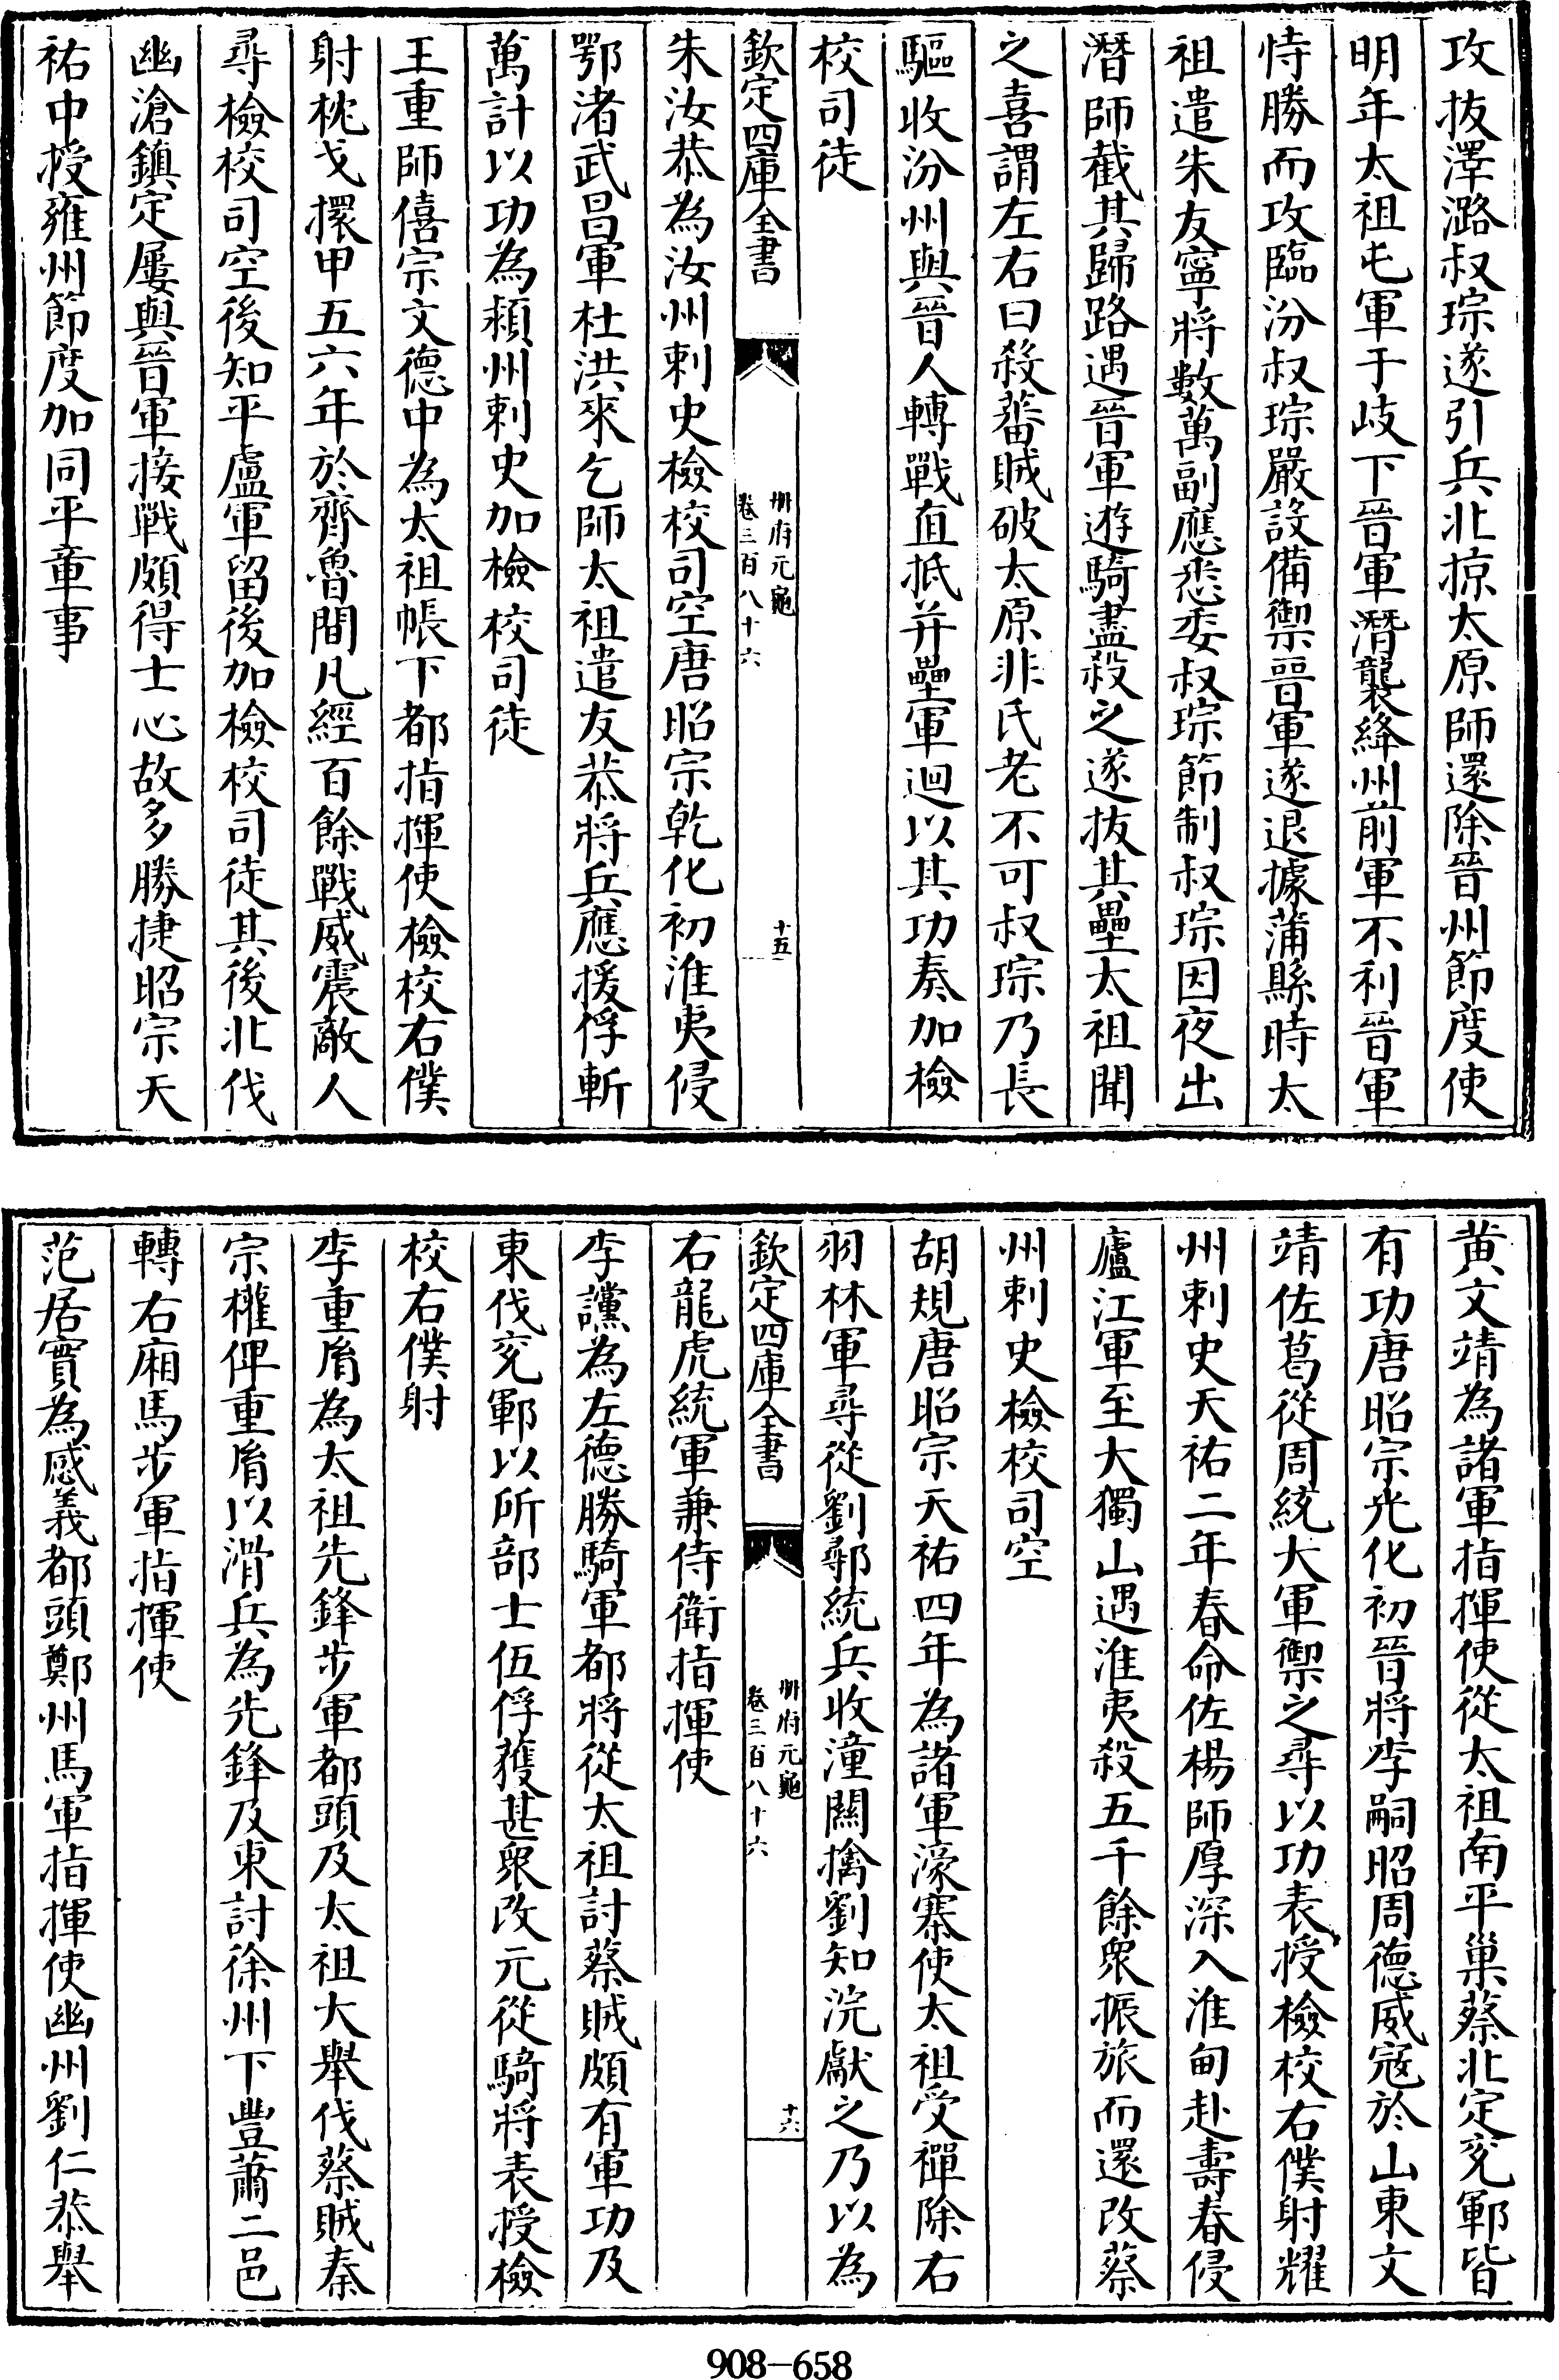 攻拔澤潞叔琮遂引兵北掠太原師還除晉州節度使
明年太祖屯軍于岐下晉軍潛襲絳州前軍不利晉軍
恃勝而攻臨汾叔琮嚴設備禦晉軍遂退據蒲縣時太
祖遣朱友寧將數萬副應悉委叔琮節制叔琮因夜出
潛師截其歸路遇晉軍遊騎盡殺之遂拔其壘太祖聞
之喜謂左右曰殺蕃賊破太原非氏老不可叔琮乃長
驅收汾州與晉人轉戰直抵并壘軍迴以其功奏加檢
校司徒
欽定四庫全書
冊府元龜
卷三百八十六
十五
朱汝恭為汝州刺史檢校司空唐昭宗乾化初淮夷侵
鄂渚武昌軍杜洪來乞師太祖遣友恭將兵應援俘斬
萬計以功為潁州刺史加檢校司徒
王重師僖宗文德中為太祖帳下都指揮使檢校右僕
射枕戈擐甲五六年於齊魯間凡經百餘戰威震敵人
尋檢校司空後知平盧軍留後加檢校司徒其後北伐
幽滄鎮定屢與晉軍接戰頗得士心故多勝捷昭宗天
祐中授雍州節度加同平章事
黄文靖為諸軍指揮使從太祖南平巢蔡北定兗鄆皆
有功唐昭宗光化初晉將李嗣昭周德威寇於山東文
靖佐葛從周統大軍禦之尋以功表授檢校右僕射耀
州刺史天祐二年春命佐楊師厚深入淮甸赴壽春侵
廬江軍至大獨山遇淮夷殺五千餘衆振旅而還改蔡
州刺史檢校司空
胡規唐昭宗天祐四年為諸軍濠寨使太祖受禪除右
羽林軍尋從劉鄩統兵收潼關擒劉知浣獻之乃以為
欽定四庫全書
冊府元龜
卷三百八十六
十六
右龍虎統軍兼侍衛指揮使
李讜為左德勝騎軍都將從太祖討蔡賊頗有軍功及
東伐兗鄆以所部士伍俘獲甚衆改元從騎將表授檢
校右僕射
李重胤為太祖先鋒步軍都頭及太祖大舉伐蔡賊秦
宗權俾重胤以滑兵為先鋒及東討徐州下豐蕭二邑
轉右廂馬步軍指揮使
范居實為感義都頭鄭州馬軍指揮使幽州劉仁恭舉
908-658